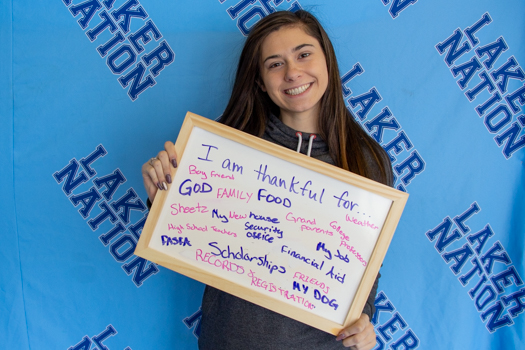 I am thankful for...
Boyfriend
GOD FAMILY FOOD Weather
Sheetz My New house Grand parents College professors
High School Teachers Security office My Job
PASFA Scholarships Financial Aid
RECORDS & REGISTRATION FRIENDS
MY DOG
LAKER NATION
LAKER NATION
LAKER NATION
LAKER NATION
LAKER NATION
LAKER NATION